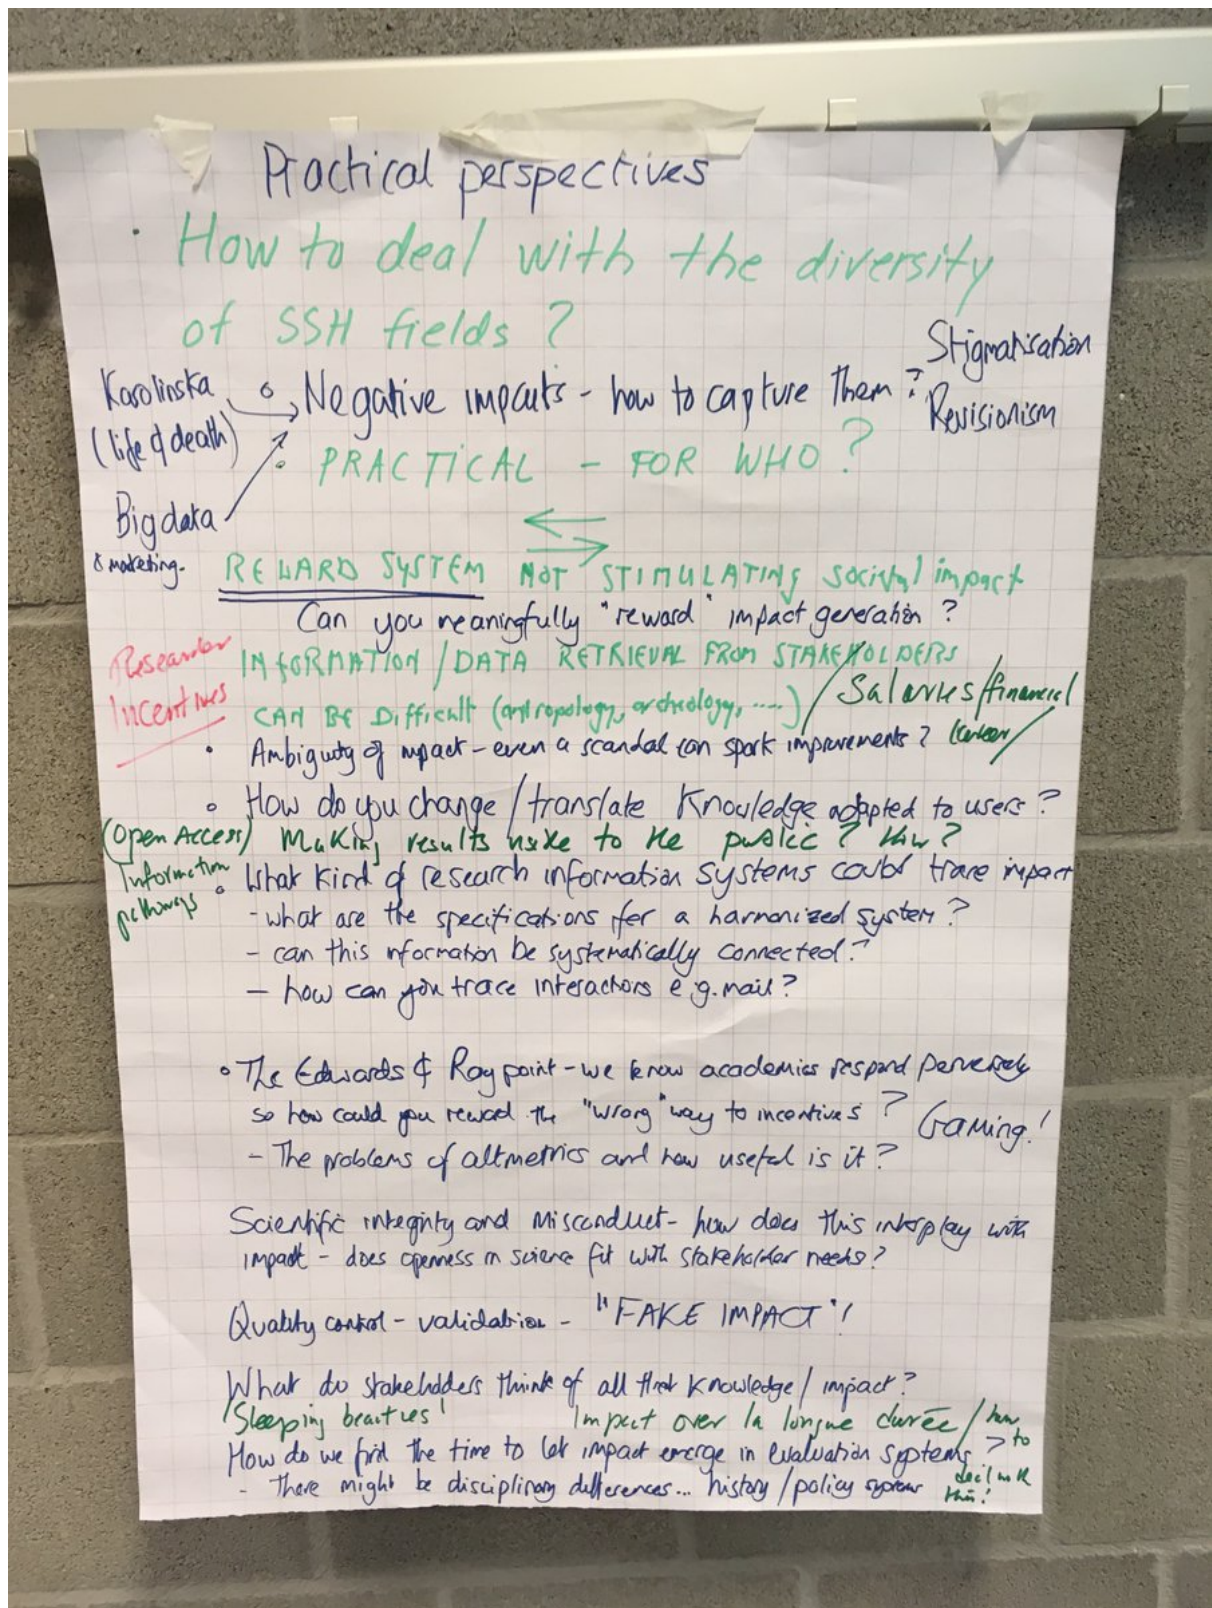 Practical perspectives
• How to deal with the diversity
of SSH fields ?
Stigmatisation
Karolinska
(life & death)
∘ Negative impacts - how to capture them ?
Revisionism
• PRACTICAL - FOR WHO ?
Big data
& marketing.
REWARD SYSTEM NOT STIMULATING societal impact
Can you meaningfully "reward" impact generation ?
Researcher
Incentives
INFORMATION / DATA RETRIEVAL FROM STAKEHOLDERS
CAN BE Difficult (antropology, archeology, ....)
/ Salaries/financial
career/
• Ambiguity of impact - even a scandal can spark improvements ?
∘ How do you change / translate Knowledge adapted to users ?
(Open Access) Making results to the public ? How ?
Information
pathways
∘ What kind of research information systems could trace impact
- what are the specifications for a harmonized system ?
- can this information be systematically connected ?
- how can you trace interactions e.g. mail ?
∘ The Edwards & Roy point - we know academics respond perversely
so how could you reward the "wrong" way to incentives ?
Gaming!
- The problems of altmetrics and how useful is it ?
Scientific integrity and misconduct - how does this interplay with
impact - does openness in science fit with stakeholder needs ?
Quality control - validation - "FAKE IMPACT" !
What do stakeholders think of all that knowledge / impact ?
'Sleeping beauties' Impact over la longue durée / how to
deal with
this!
How do we find the time to let impact emerge in evaluation systems ?
- There might be disciplinary differences... history / policy